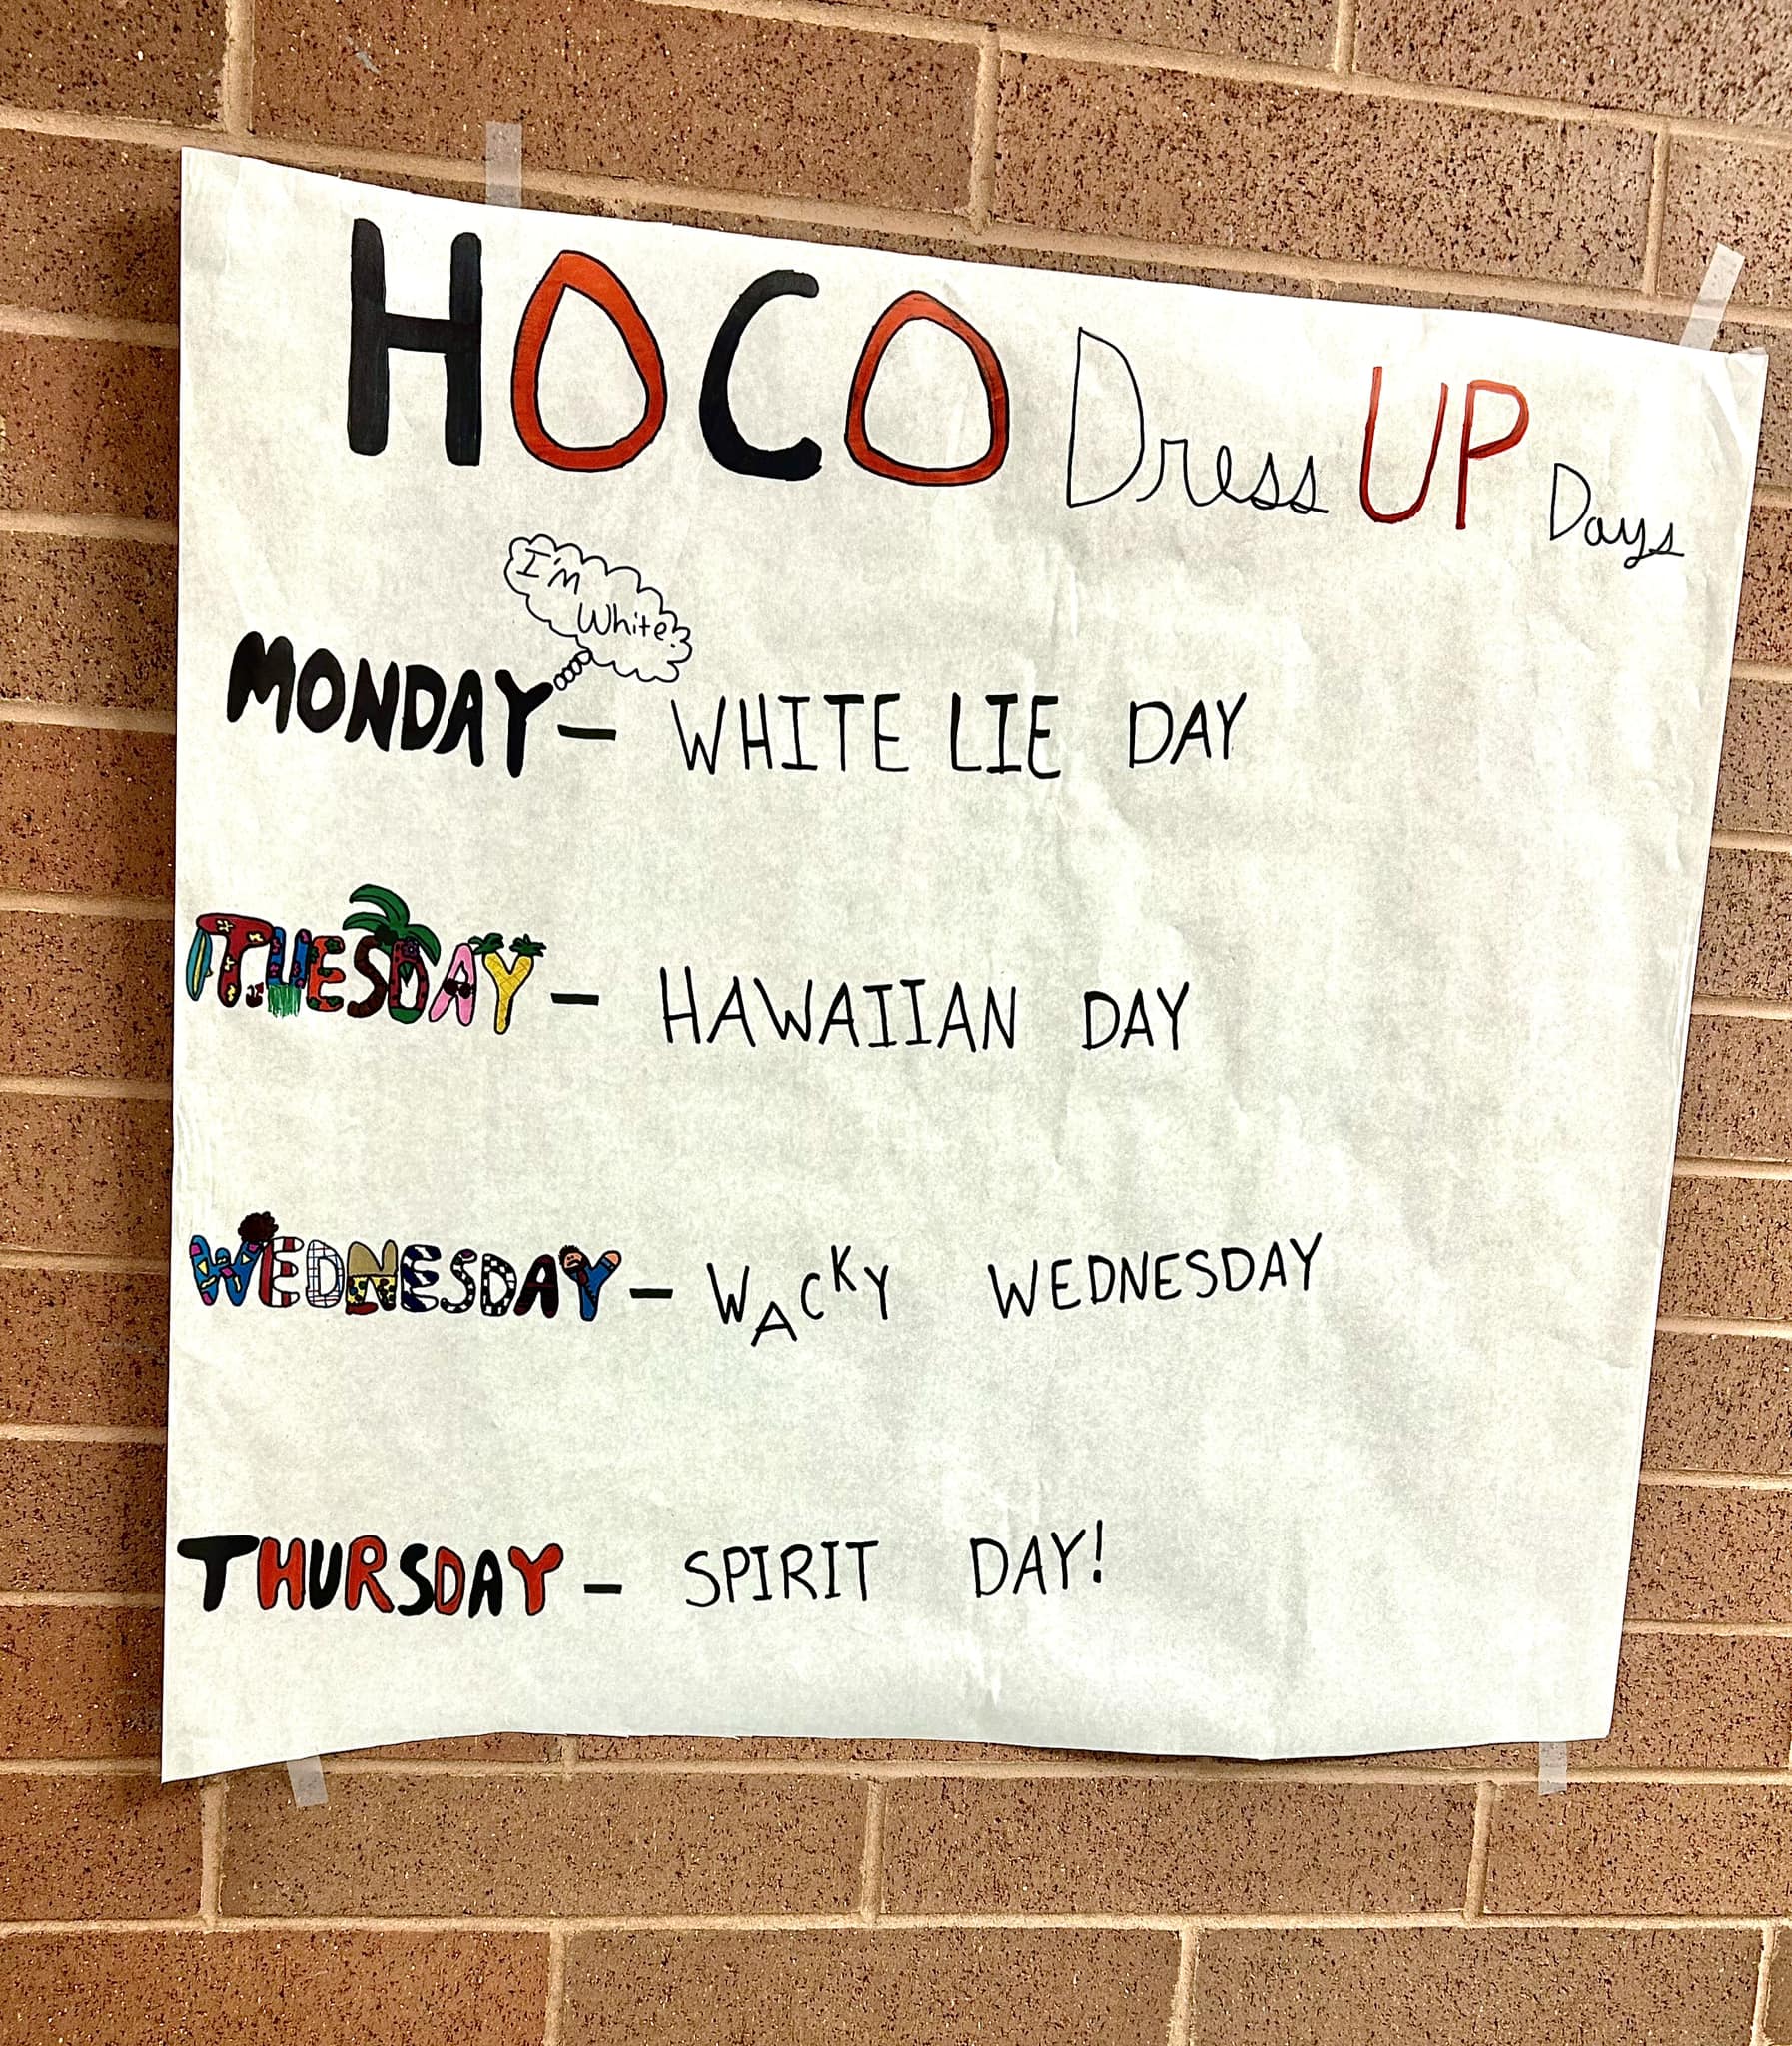 HOCO Dress UP Days
I'm
White?
MONDAY - WHITE LIE DAY
TUESDAY - HAWAIIAN DAY
WEDNESDAY - WACKY WEDNESDAY
THURSDAY - SPIRIT DAY!